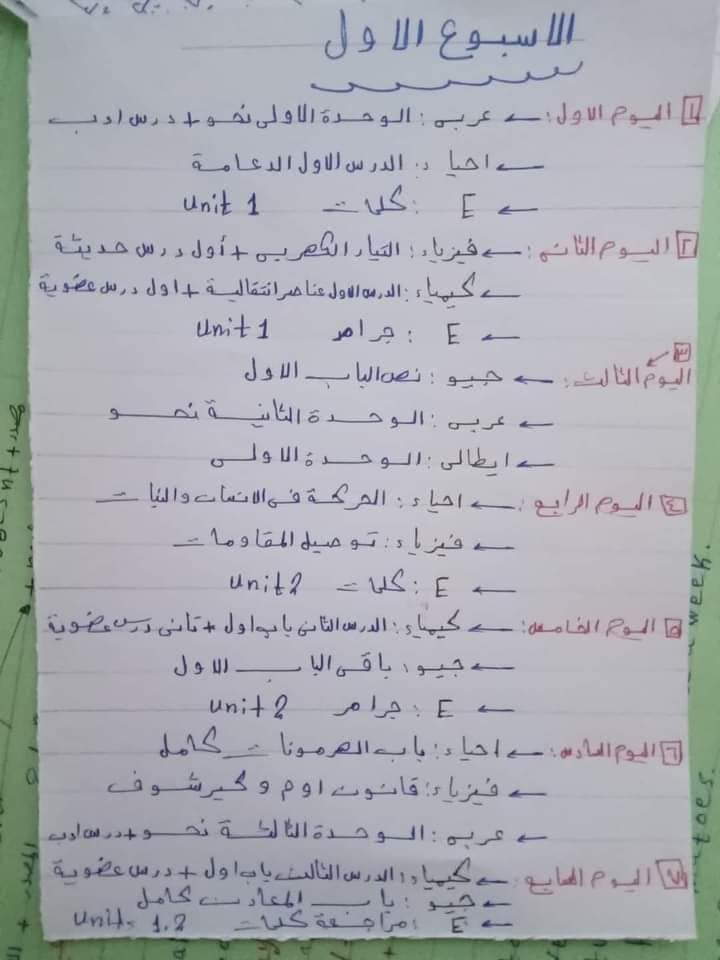 الاسبوع الاول
١ اليوم الاول: ← عربى: الوحدة الاولى نحو + درس ادب
← احياء: الدرس الاول الدعامة
← E: كلمات Unit 1
٢ اليوم الثانى: ← فيزياء: التيار الكهربى + أول درس حديثة
← كيمياء: الدرس الاول عناصر انتقالية + اول درس عضوية
← E: جرامر Unit 1
٣
اليوم الثالث: ← جيو: نص الباب الاول
← عربى: الوحدة الثانية نحو
← ايطالى: الوحدة الاولى
٤ اليوم الرابع: ← احياء: الحركة فى الانسان والنبات
← فيزياء: توصيل المقاومات
← E: كلمات Unit 2
٥ اليوم الخامس: ← كيمياء: الدرس الثانى باب اول + تانى درس عضوية
← جيو: باقى الباب الاول
← E: جرامر Unit 2
٦ اليوم السادس: ← احياء: باب الهرمونات كامل
← فيزياء: قانون اوم وكيرشوف
← عربى: الوحدة الثالثة نحو + درس ادب
٧ اليوم السابع: ← كيمياء: الدرس الثالث باب اول + درس عضوية
← جيو: باب المعادن كامل
← E: مراجعة كلمات Unit 1.2
week.